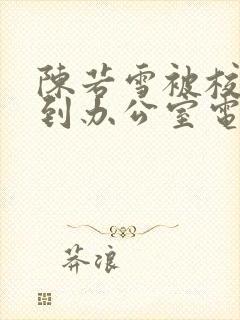 陳若雪被校
到办公室電
莽浪